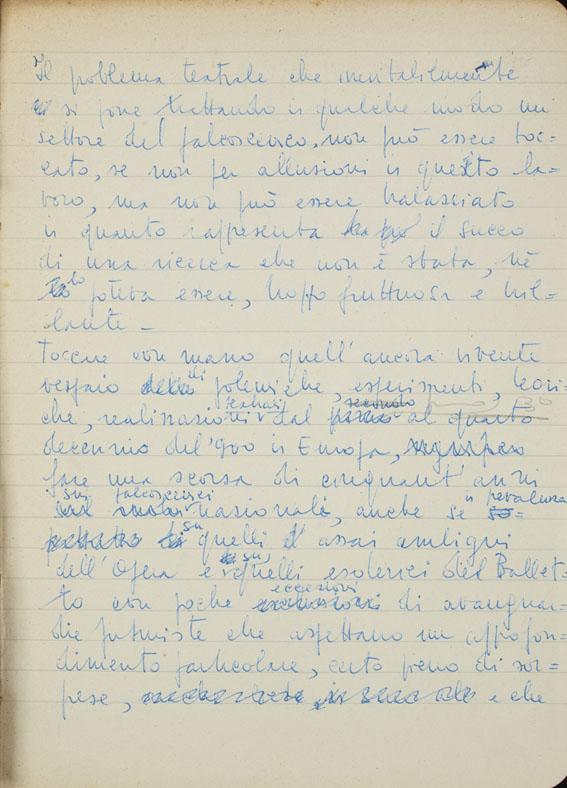 Il problema teatrale che inevitabilmente
si pone trattando in qualche modo un
settore del palcoscenico, non può essere toc=
cato, se non per allusioni in questo la=
voro, ma non può essere tralasciato
in quanto rappresenta il succo
di una ricerca che non è stata, nè
lo poteva essere, troppo fruttuosa e bril=
lante –
Toccare con mano quell'ancora vivente
vespaio di polemiche, esperimenti, teori=
che, realizzazioni teatrali dal secondo al quarto
decennio del '900 in Europa,
fare una scorsa di cinquant'anni
su palcoscenici nazionali, anche se in prevalenza
su quelli assai ambigui
dell'Opera e su quelli esoterici del Ballet=
to con poche eccezioni di avanguar=
die futuriste che aspettano un approfon=
dimento particolare, certo pieno di sor=
prese, e che